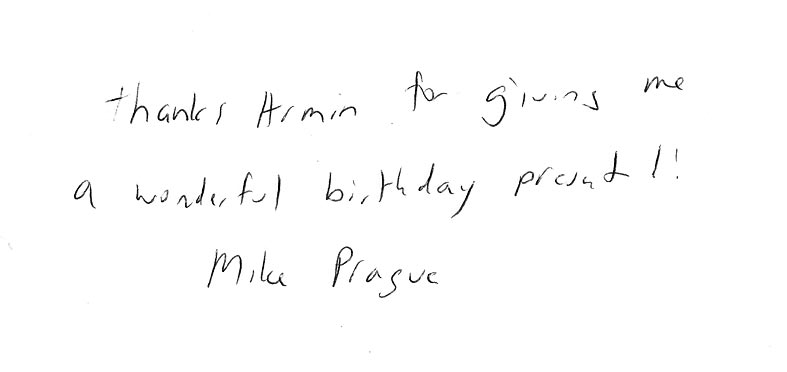 thanks Armin for giving me
a wonderful birthday present!!
Mike Prague